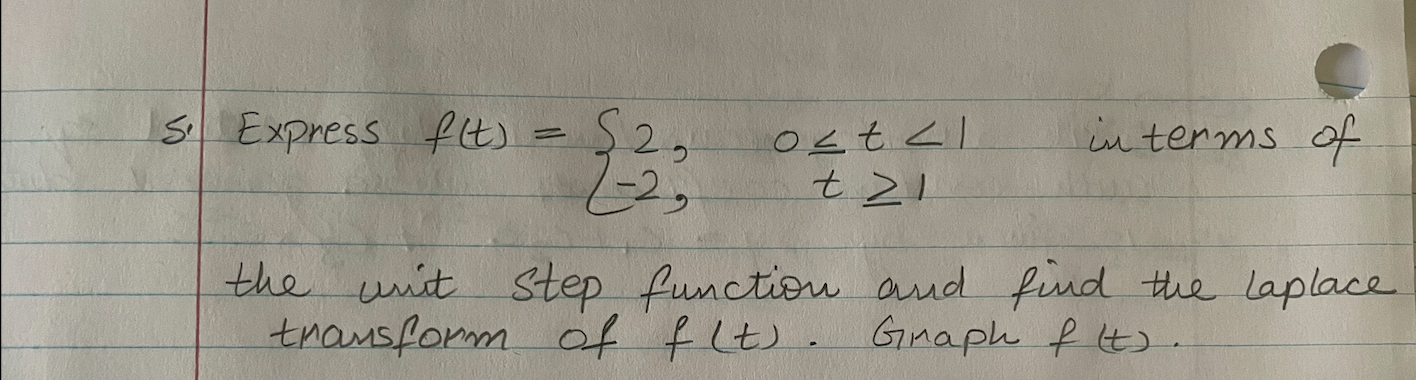 5. Express f(t) = { 2, 0 ≤ t < 1 in terms of
-2, t ≥ 1
the unit step function and find the laplace
transform of f(t). Graph f(t).